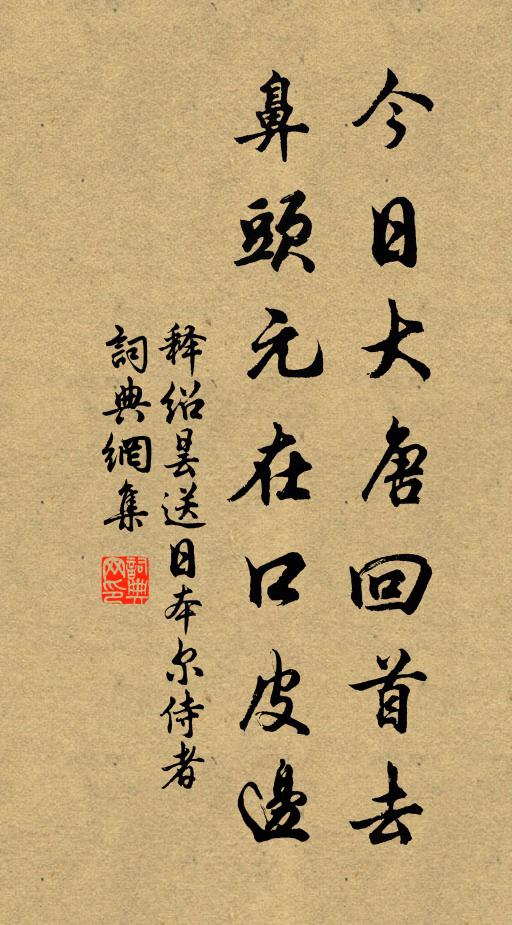 今日大唐回首去
鼻頭元在口皮邊
释绍昙送日本尔侍者
詞典網集
詞典网印